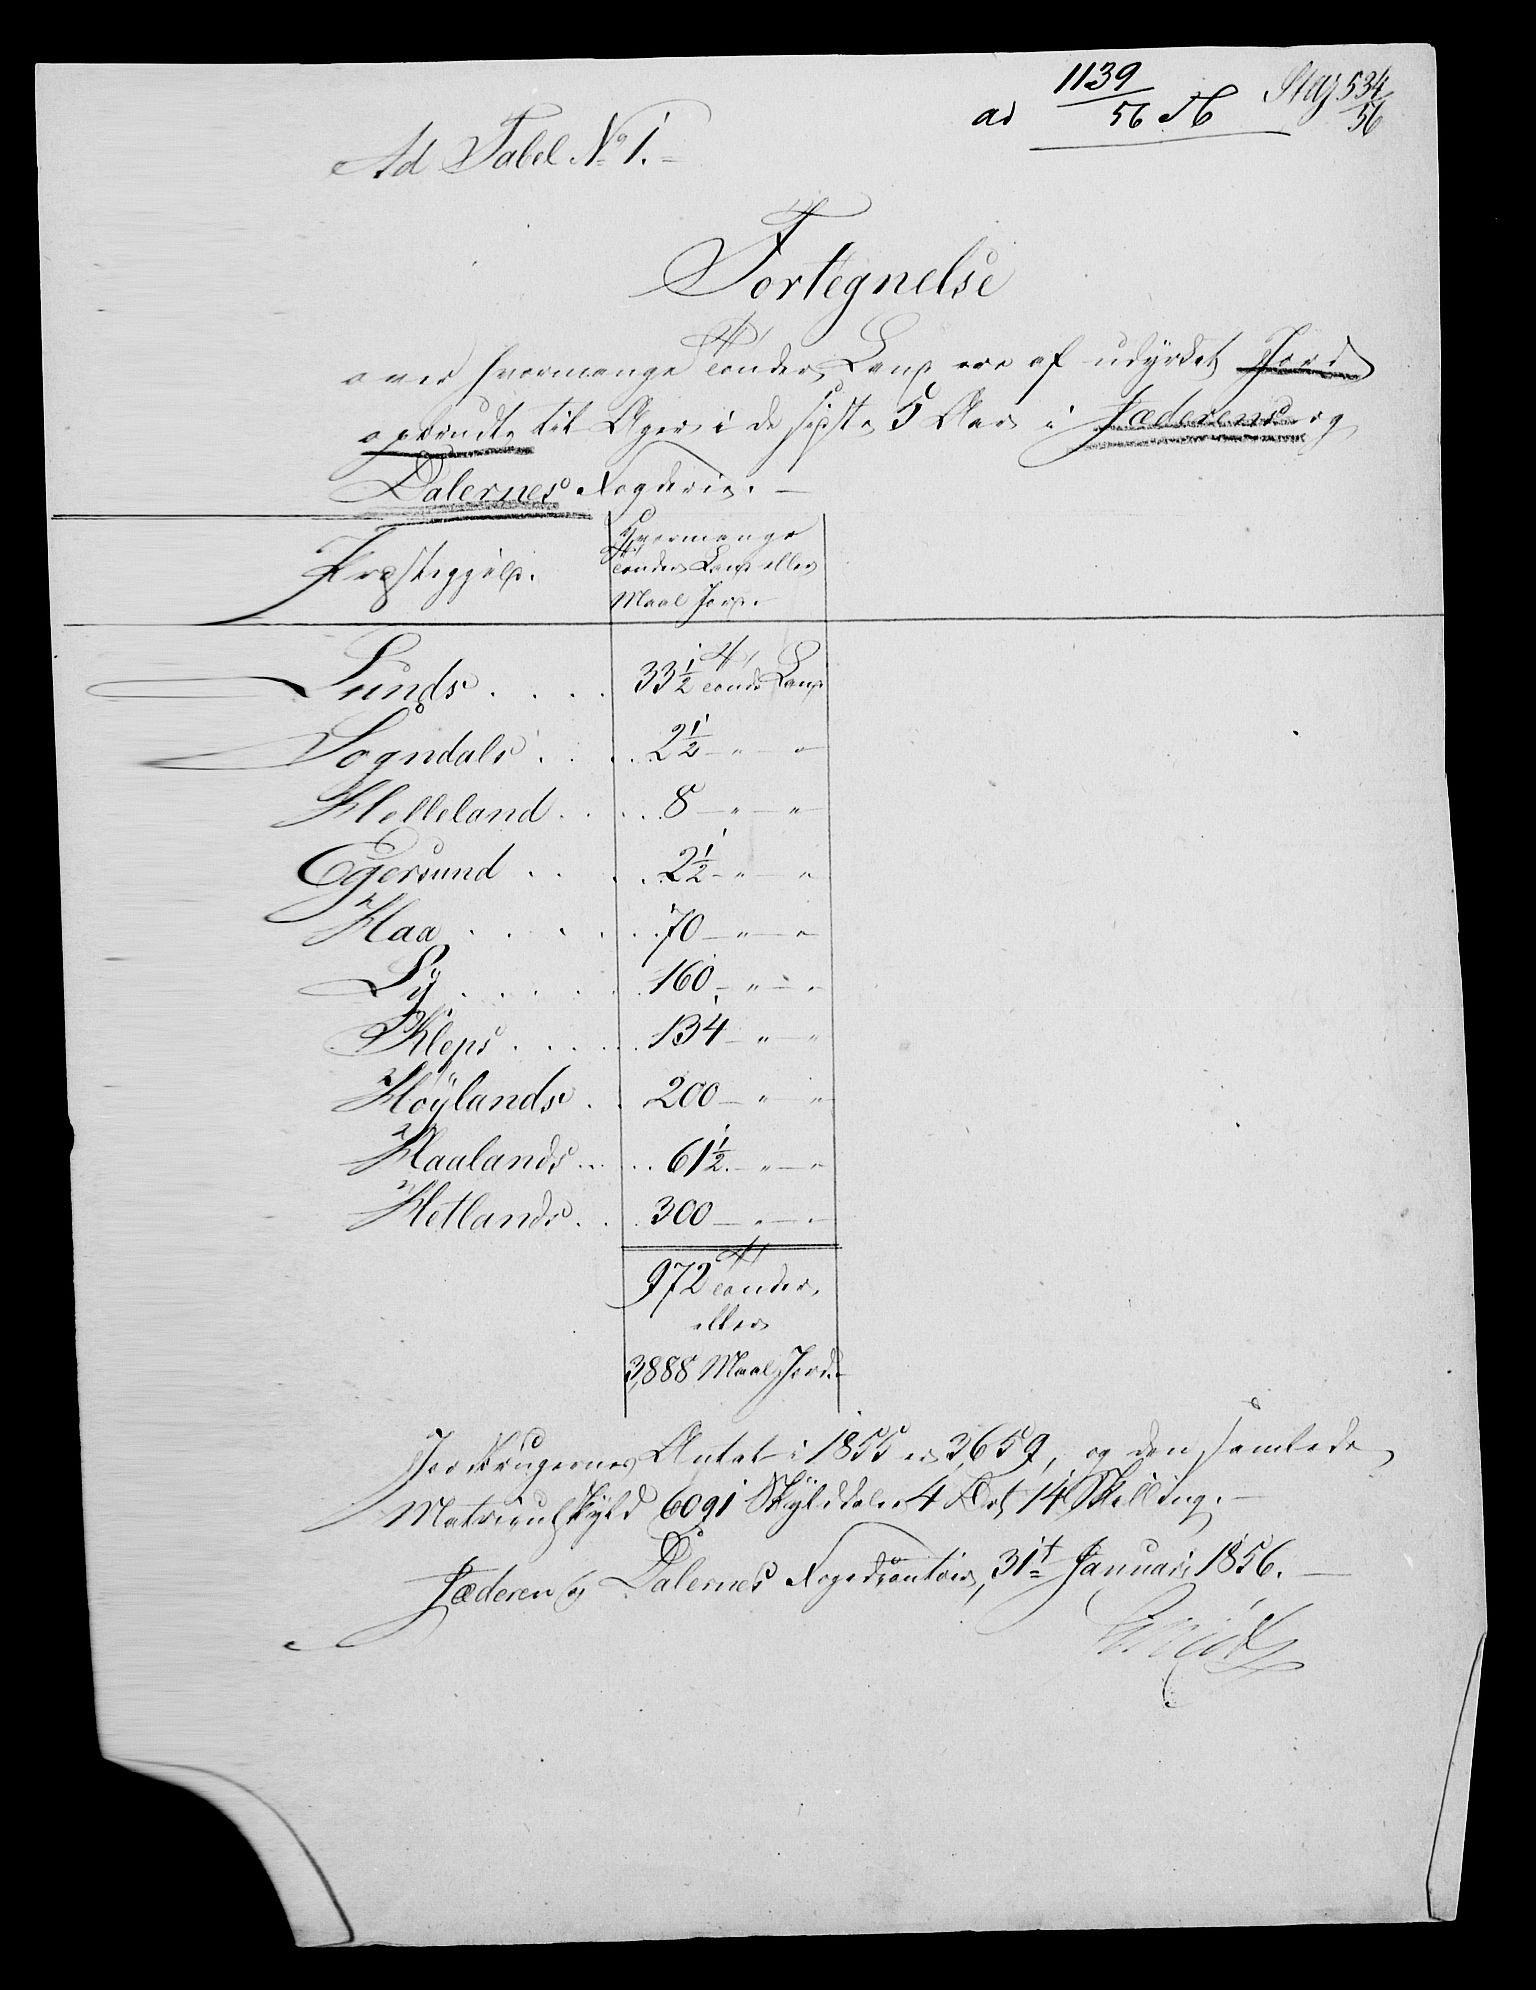 ad 1139/56
534/56
Ad Tabel No 1.
Fortegnelse
over hvormange Tønder Land der af udyrket Jord
opbrudt til Ager i de sidste 5 Aar i Jæderens og
Dalernes Fogderie.
Præstegjeld.
Hvormange
Tønder Land eller
Maal Jord.
Lunds . . . . 33 1/2 Tønde Land
Sogndals . . . . 2 1/2 — " — "
Helleland . . . . . 8 — " — "
Egersund . . . . . 2 1/2 — " — "
Haa . . . . . . 70 — " — "
Ly . . . . . . 160 — " — "
Kleps . . . . . 134 — " — "
Høÿlands . . 200 — " — "
Haalands . . . . . 61 1/2 — " — "
Hetlands . . . 300 — " — "
972 Tønder
eller
3,888 Maal Jord.
Jordbrugernes Antal i 1855 er 3,659, og den samlede
Matriculskyld 6091 Skylddaler 4 Ort 14 Skilling.
Jæderen og Dalernes Fogedcontoir, 31t Januar 1856.